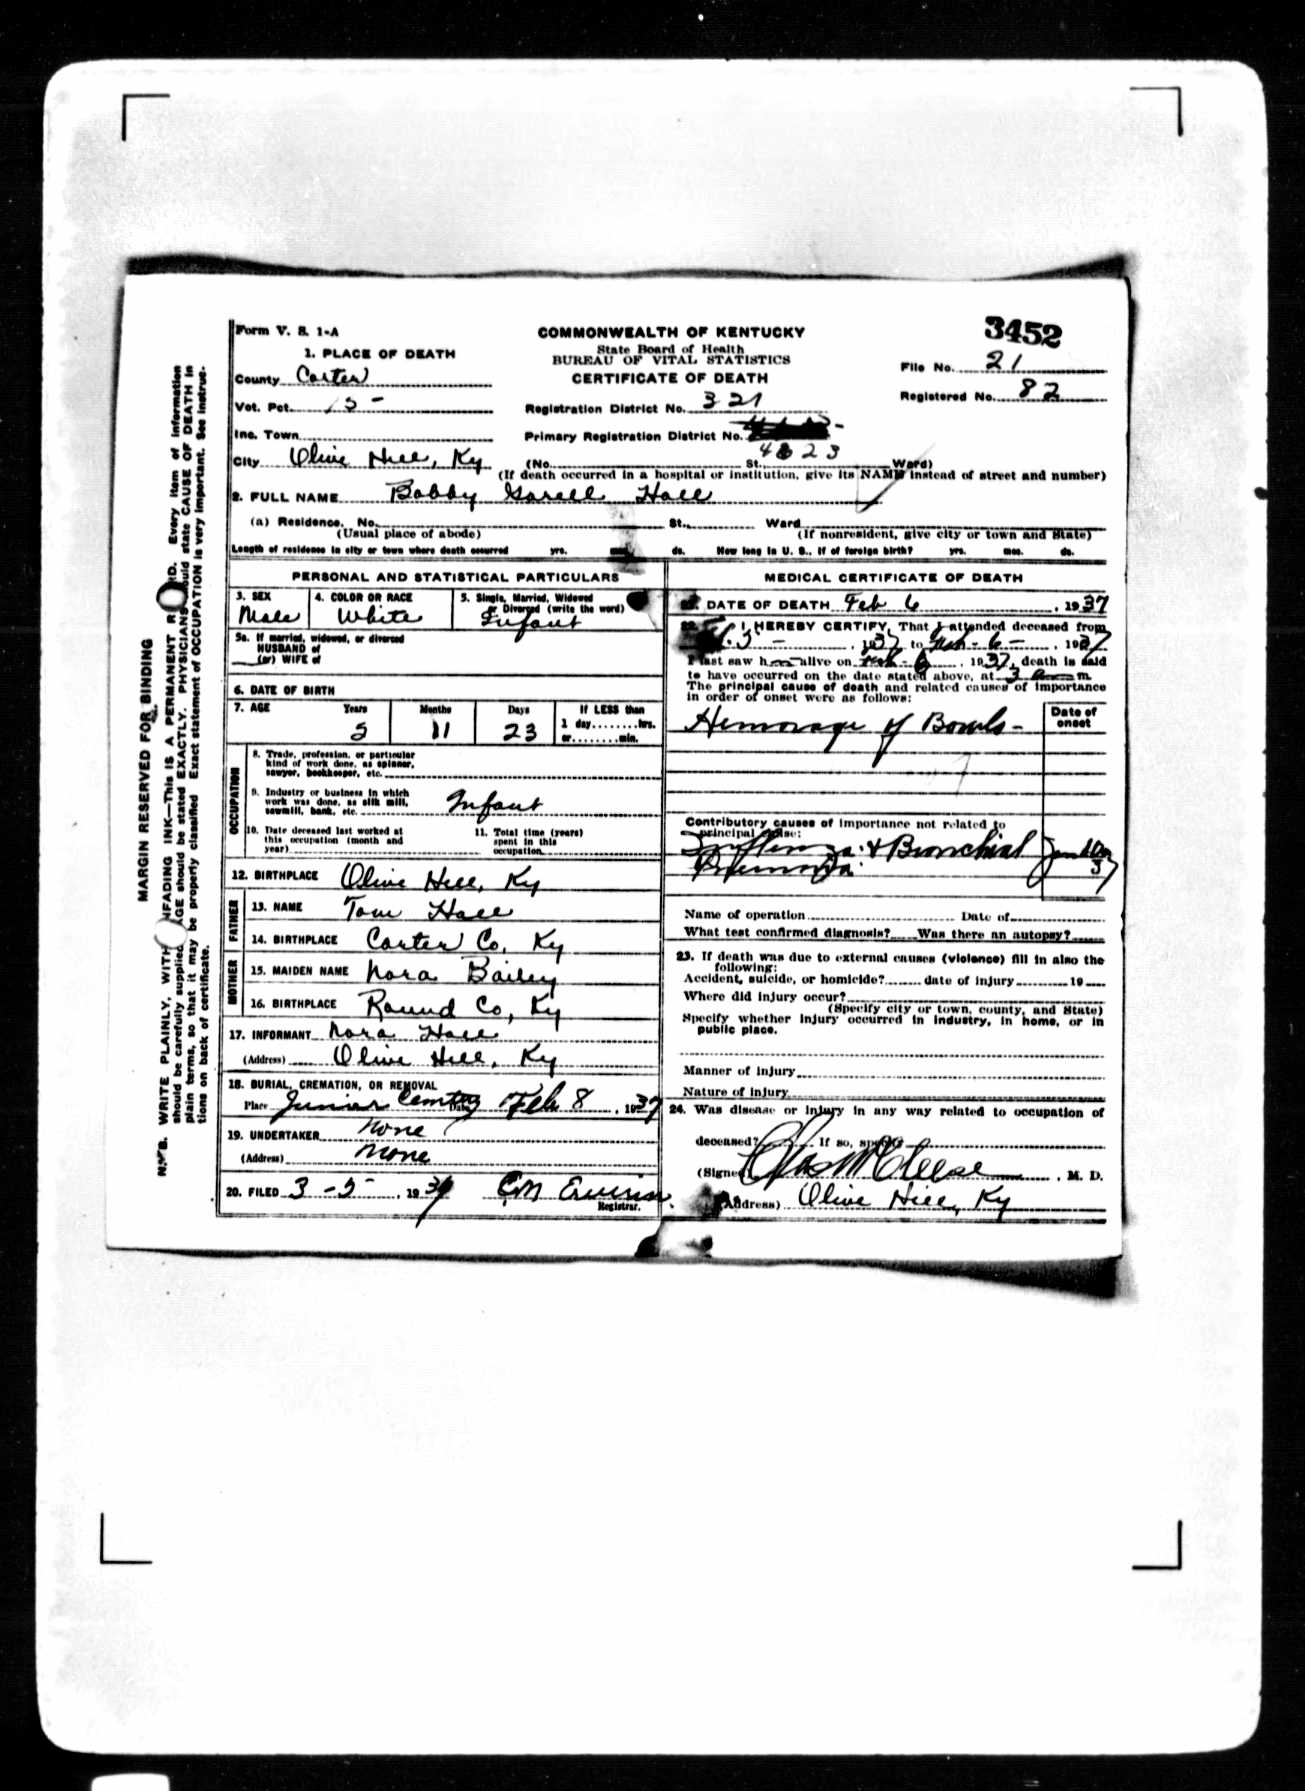 Form V. S. 1-A
COMMONWEALTH OF KENTUCKY
State Board of Health
BUREAU OF VITAL STATISTICS
CERTIFICATE OF DEATH
3452
File No. 21
Registered No. 82
1. PLACE OF DEATH
County Carter
Vot. Pct. 15 -
Inc. Town
City Olive Hill, Ky
Registration District No. 321
Primary Registration District No.
(No. St., Ward)
(If death occurred in a hospital or institution, give its NAME instead of street and number)
2. FULL NAME Bobby Hall
(a) Residence. No. St., Ward
(Usual place of abode) (If nonresident, give city or town and State)
Length of residence in city or town where death occurred yrs. mos. ds. How long in U. S., if of foreign birth? yrs. mos. ds.
PERSONAL AND STATISTICAL PARTICULARS
3. SEX 4. COLOR OR RACE 5. Single, Married, Widowed
or Divorced (write the word)
Male White Infant
5a. If married, widowed, or divorced
HUSBAND of
(or) WIFE of
6. DATE OF BIRTH
7. AGE Years Months Days If LESS than
1 day........hrs.
or........min.
5 11 23
OCCUPATION
8. Trade, profession, or particular
kind of work done, as spinner,
sawyer, bookkeeper, etc.
9. Industry or business in which
work was done, as silk mill,
sawmill, bank, etc.
Infant
10. Date deceased last worked at
this occupation (month and
year)
11. Total time (years)
spent in this
occupation
12. BIRTHPLACE Olive Hill, Ky
FATHER
13. NAME Tom Hall
14. BIRTHPLACE Carter Co, Ky
MOTHER
15. MAIDEN NAME Nora Bailey
16. BIRTHPLACE Round Co, Ky
17. INFORMANT Nora Hall
(Address) Olive Hill, Ky
18. BURIAL, CREMATION, OR REMOVAL
Place Junior Cemtry Date Feb 8, 1937
19. UNDERTAKER None
(Address) None
20. FILED 3 - 5 -, 1937 CM
Registrar.
MEDICAL CERTIFICATE OF DEATH
21. DATE OF DEATH Feb 6, 1937
22. I HEREBY CERTIFY, That I attended deceased from
3 -, 1937 to Feb - 6 -, 1937
I last saw h alive on Feb - 6, 1937, death is said
to have occurred on the date stated above, at 3 a m.
The principal cause of death and related causes of importance
in order of onset were as follows:
Date of
onset
Hemorage of Bowels -
Contributory causes of importance not related to
principal cause:
Influenza & Bronchial
Pneumonia
Name of operation Date of
What test confirmed diagnosis? Was there an autopsy?
23. If death was due to external causes (violence) fill in also the
following:
Accident, suicide, or homicide? date of injury 19
Where did injury occur?
(Specify city or town, county, and State)
Specify whether injury occurred in industry, in home, or in
public place.
Manner of injury
Nature of injury
24. Was disease or injury in any way related to occupation of
deceased? If so, specify
(Signed) Chas M Cleese, M. D.
(Address) Olive Hill, Ky
MARGIN RESERVED FOR BINDING
N. B. WRITE PLAINLY, WITH UNFADING INK—This IS A PERMANENT RECORD. Every item of information
should be carefully supplied. AGE should be stated EXACTLY. PHYSICIANS should state CAUSE OF DEATH in
plain terms, so that it may be properly classified. Exact statement of OCCUPATION is very important. See instruc-
tions on back of certificate.